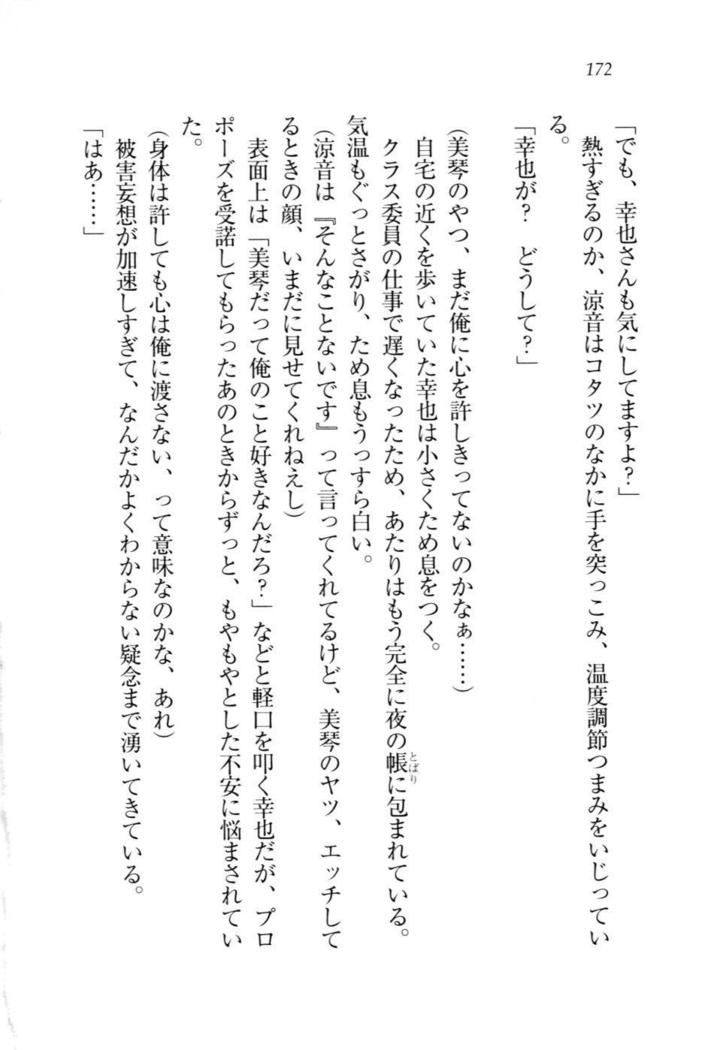 172
「でも、幸也さんも気にしてますよ？」
熱すぎるのか、涼音はコタツのなかに手を突っこみ、温度調節つまみをいじってい
る。
「幸也が？　どうして？」
（美琴のやつ、まだ俺に心を許しきってないのかなぁ……）
自宅の近くを歩いていた幸也は小さくため息をつく。
クラス委員の仕事で遅くなったため、あたりはもう完全に夜の帳に包まれている。
とばり
気温もぐっとさがり、ため息もうっすら白い。
（涼音は『そんなことないです』って言ってくれてるけど、美琴のヤツ、エッチして
るときの顔、いまだに見せてくれねえし）
表面上は「美琴だって俺のこと好きなんだろ？」などと軽口を叩く幸也だが、プロ
ポーズを受諾してもらったあのときからずっと、もやもやとした不安に悩まされてい
た。
（身体は許しても心は俺に渡さない、って意味なのかな、あれ）
被害妄想が加速しすぎて、なんだかよくわからない疑念まで湧いてきている。
「はあ……」